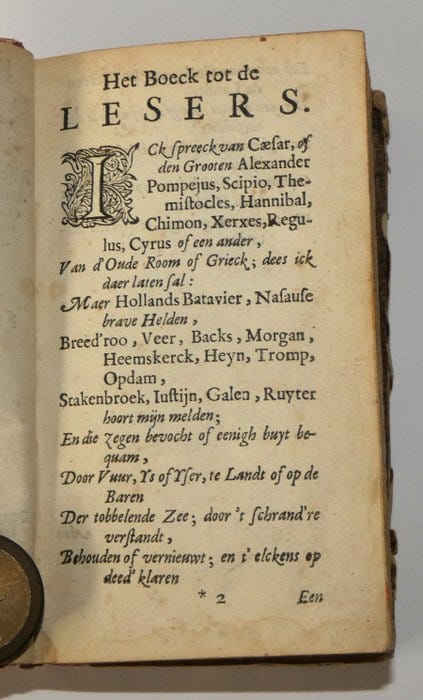 Het Boeck tot de
LESERS.
ICk spreeck van Cæsar, of
den Grooten Alexander
Pompejus, Scipio, The-
mistocles, Hannibal,
Chimon, Xerxes, Regu-
lus, Cyrus of een ander,
Van d'Oude Room of Grieck; dees ick
daer laten sal:
Maer Hollands Batavier, Nasause
brave Helden,
Breed'roo, Veer, Backs, Morgan,
Heemskerck, Heyn, Tromp,
Opdam,
Stakenbroek, Iustijn, Galen, Ruyter
hoort mijn melden;
En die zegen bevocht of eenigh buyt be-
quam,
Door Vuur, Ys of Yser, te Landt of op de
Baren
Der tobbelende Zee; door 't schrand're
verstandt,
Behouden of vernieuwt; en t' elckens op
deed' klaren
* 2 Een